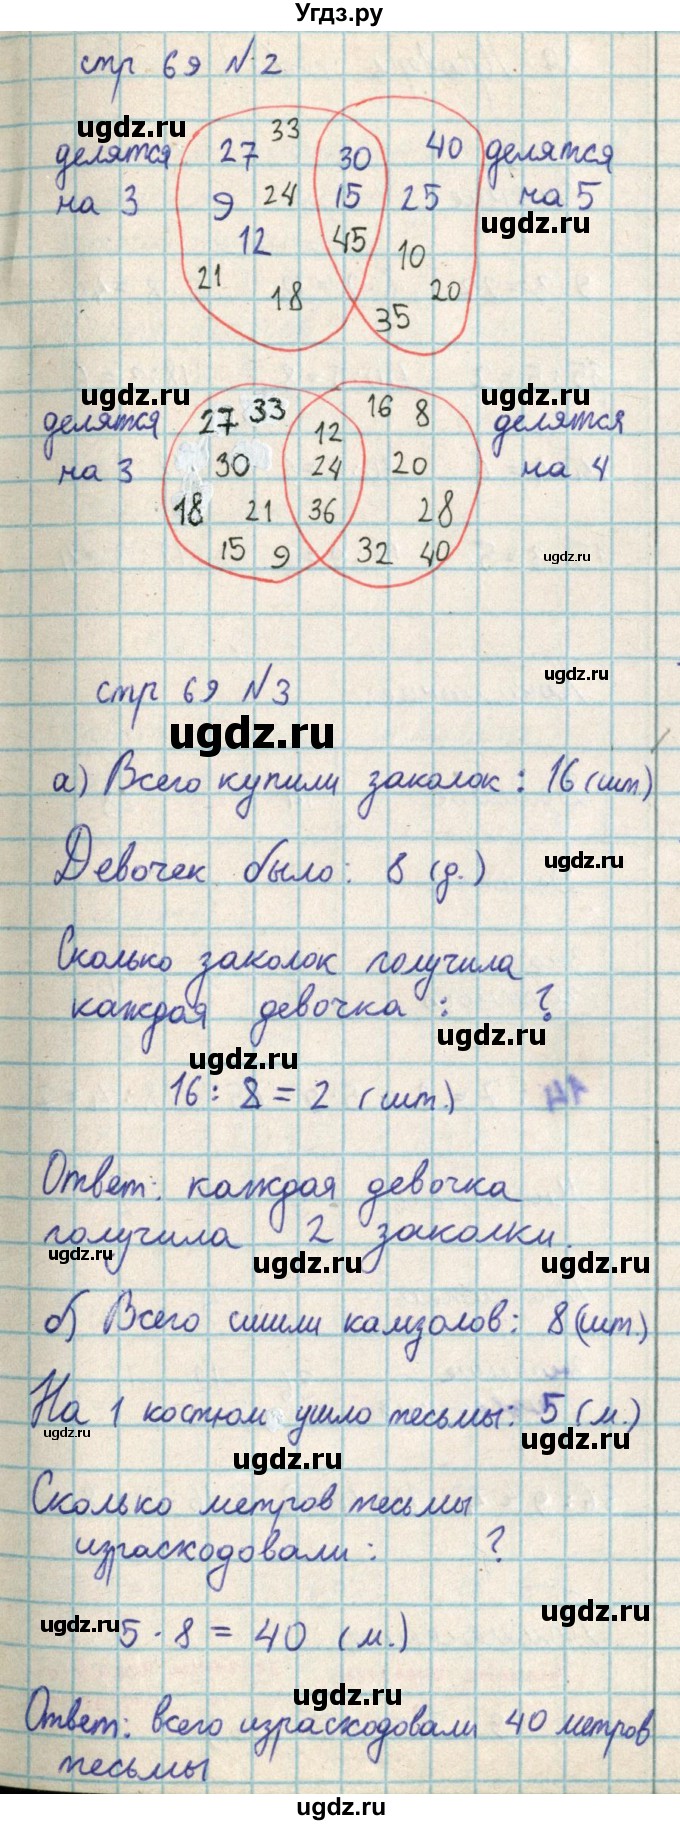 Угдз.ру
стр 69 №2
ugdz.ru
33
27 30 40
делятся делятся
на 3 9 24 15 25 на 5
ugdz.ru
12 45 10
21 18 20
35
ugdz.ru ugdz.ru
27 33 16 8
делятся 12 делятся
на 3 30 24 20 на 4
18 21 36 28
15 9 32 40
ugdz.ru
ugdz.ru
стр 69 №3
ugdz.ru
а) Всего купили заколок: 16 (шт)
ugdz.ru
Девочек было: 8 (д.)
Сколько заколок получила
каждая девочка: ?
ugdz.ru
ugdz.ru
16 : 8 = 2 (шт.)
Ответ: каждая девочка
получила 2 заколки.
ugdz.ru ugdz.ru ugdz.ru
б) Всего сшили камзолов: 8 (шт.)
На 1 костюм ушло тесьмы: 5 (м.)
ugdz.ru ugdz.ru
ugdz.ru
Сколько метров тесьмы
израсходовали: ?
ugdz.ru
ugdz.ru
5 · 8 = 40 (м.)
ugdz.ru
Ответ: всего израсходовали 40 метров
тесьмы
ugdz.ru